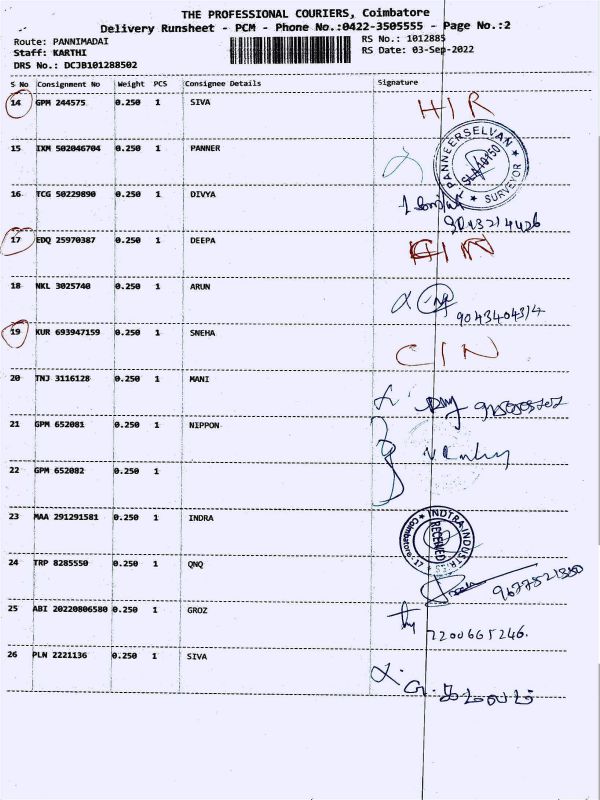 THE PROFESSIONAL COURIERS, Coimbatore
Delivery Runsheet - PCM - Phone No.:0422-3505555 - Page No.:2
Route: PANNIMADAI RS No.: 1012885
Staff: KARTHI RS Date: 03-Sep-2022
DRS No.: DCJB101288502
S No Consignment No Weight PCS Consignee Details Signature
14 GPM 244575 0.250 1 SIVA HIR
15 IXM 502046704 0.250 1 PANNER
PANNEERSELVAN SURVEYOR
16 TCG 50229890 0.250 1 DIVYA
17 EDQ 25970387 0.250 1 DEEPA
18 NKL 3025740 0.250 1 ARUN
19 KUR 693947159 0.250 1 SNEHA CIN
20 TNJ 3116128 0.250 1 MANI
21 GPM 652081 0.250 1 NIPPON
22 GPM 652082 0.250 1
23 MAA 291291581 0.250 1 INDRA
RECEIVED
24 TRP 8285550 0.250 1 QNQ
25 ABI 20220806580 0.250 1 GROZ
2200665246.
26 PLN 2221136 0.250 1 SIVA